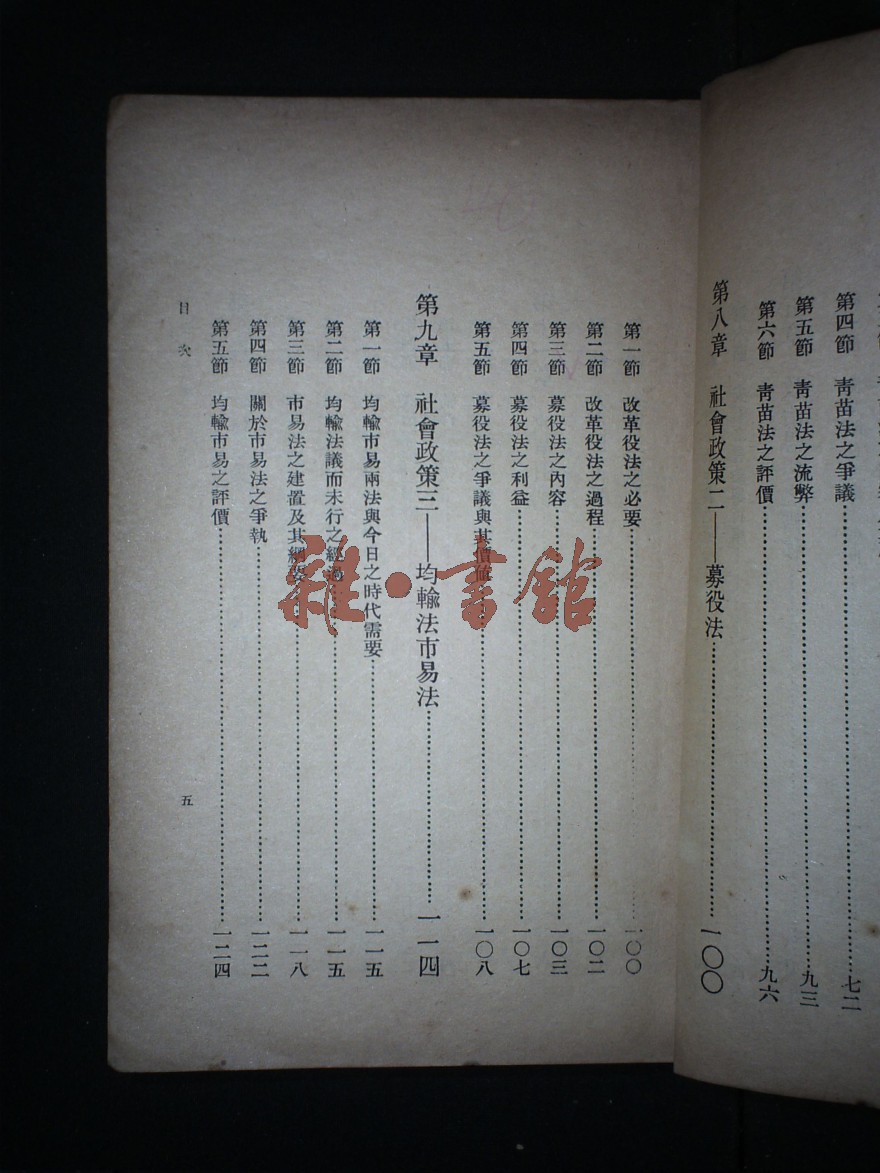 第四節　靑苗法之爭議……七二
第五節　靑苗法之流弊……九三
第六節　靑苗法之評價……九六
第八章　社會政策二——募役法……一〇〇
第一節　改革役法之必要……一〇〇
第二節　改革役法之過程……一〇二
第三節　募役法之內容……一〇三
第四節　募役法之利益……一〇七
第五節　募役法之爭議與其價値……一〇八
第九章　社會政策三——均輸法市易法……一一四
第一節　均輸市易兩法與今日之時代需要……一一五
第二節　均輸法議而未行之經過……一一五
第三節　市易法之建置及其綱要……一一八
第四節　關於市易法之爭執……一二二
第五節　均輸市易之評價……一二四
目次
五
雜·書館